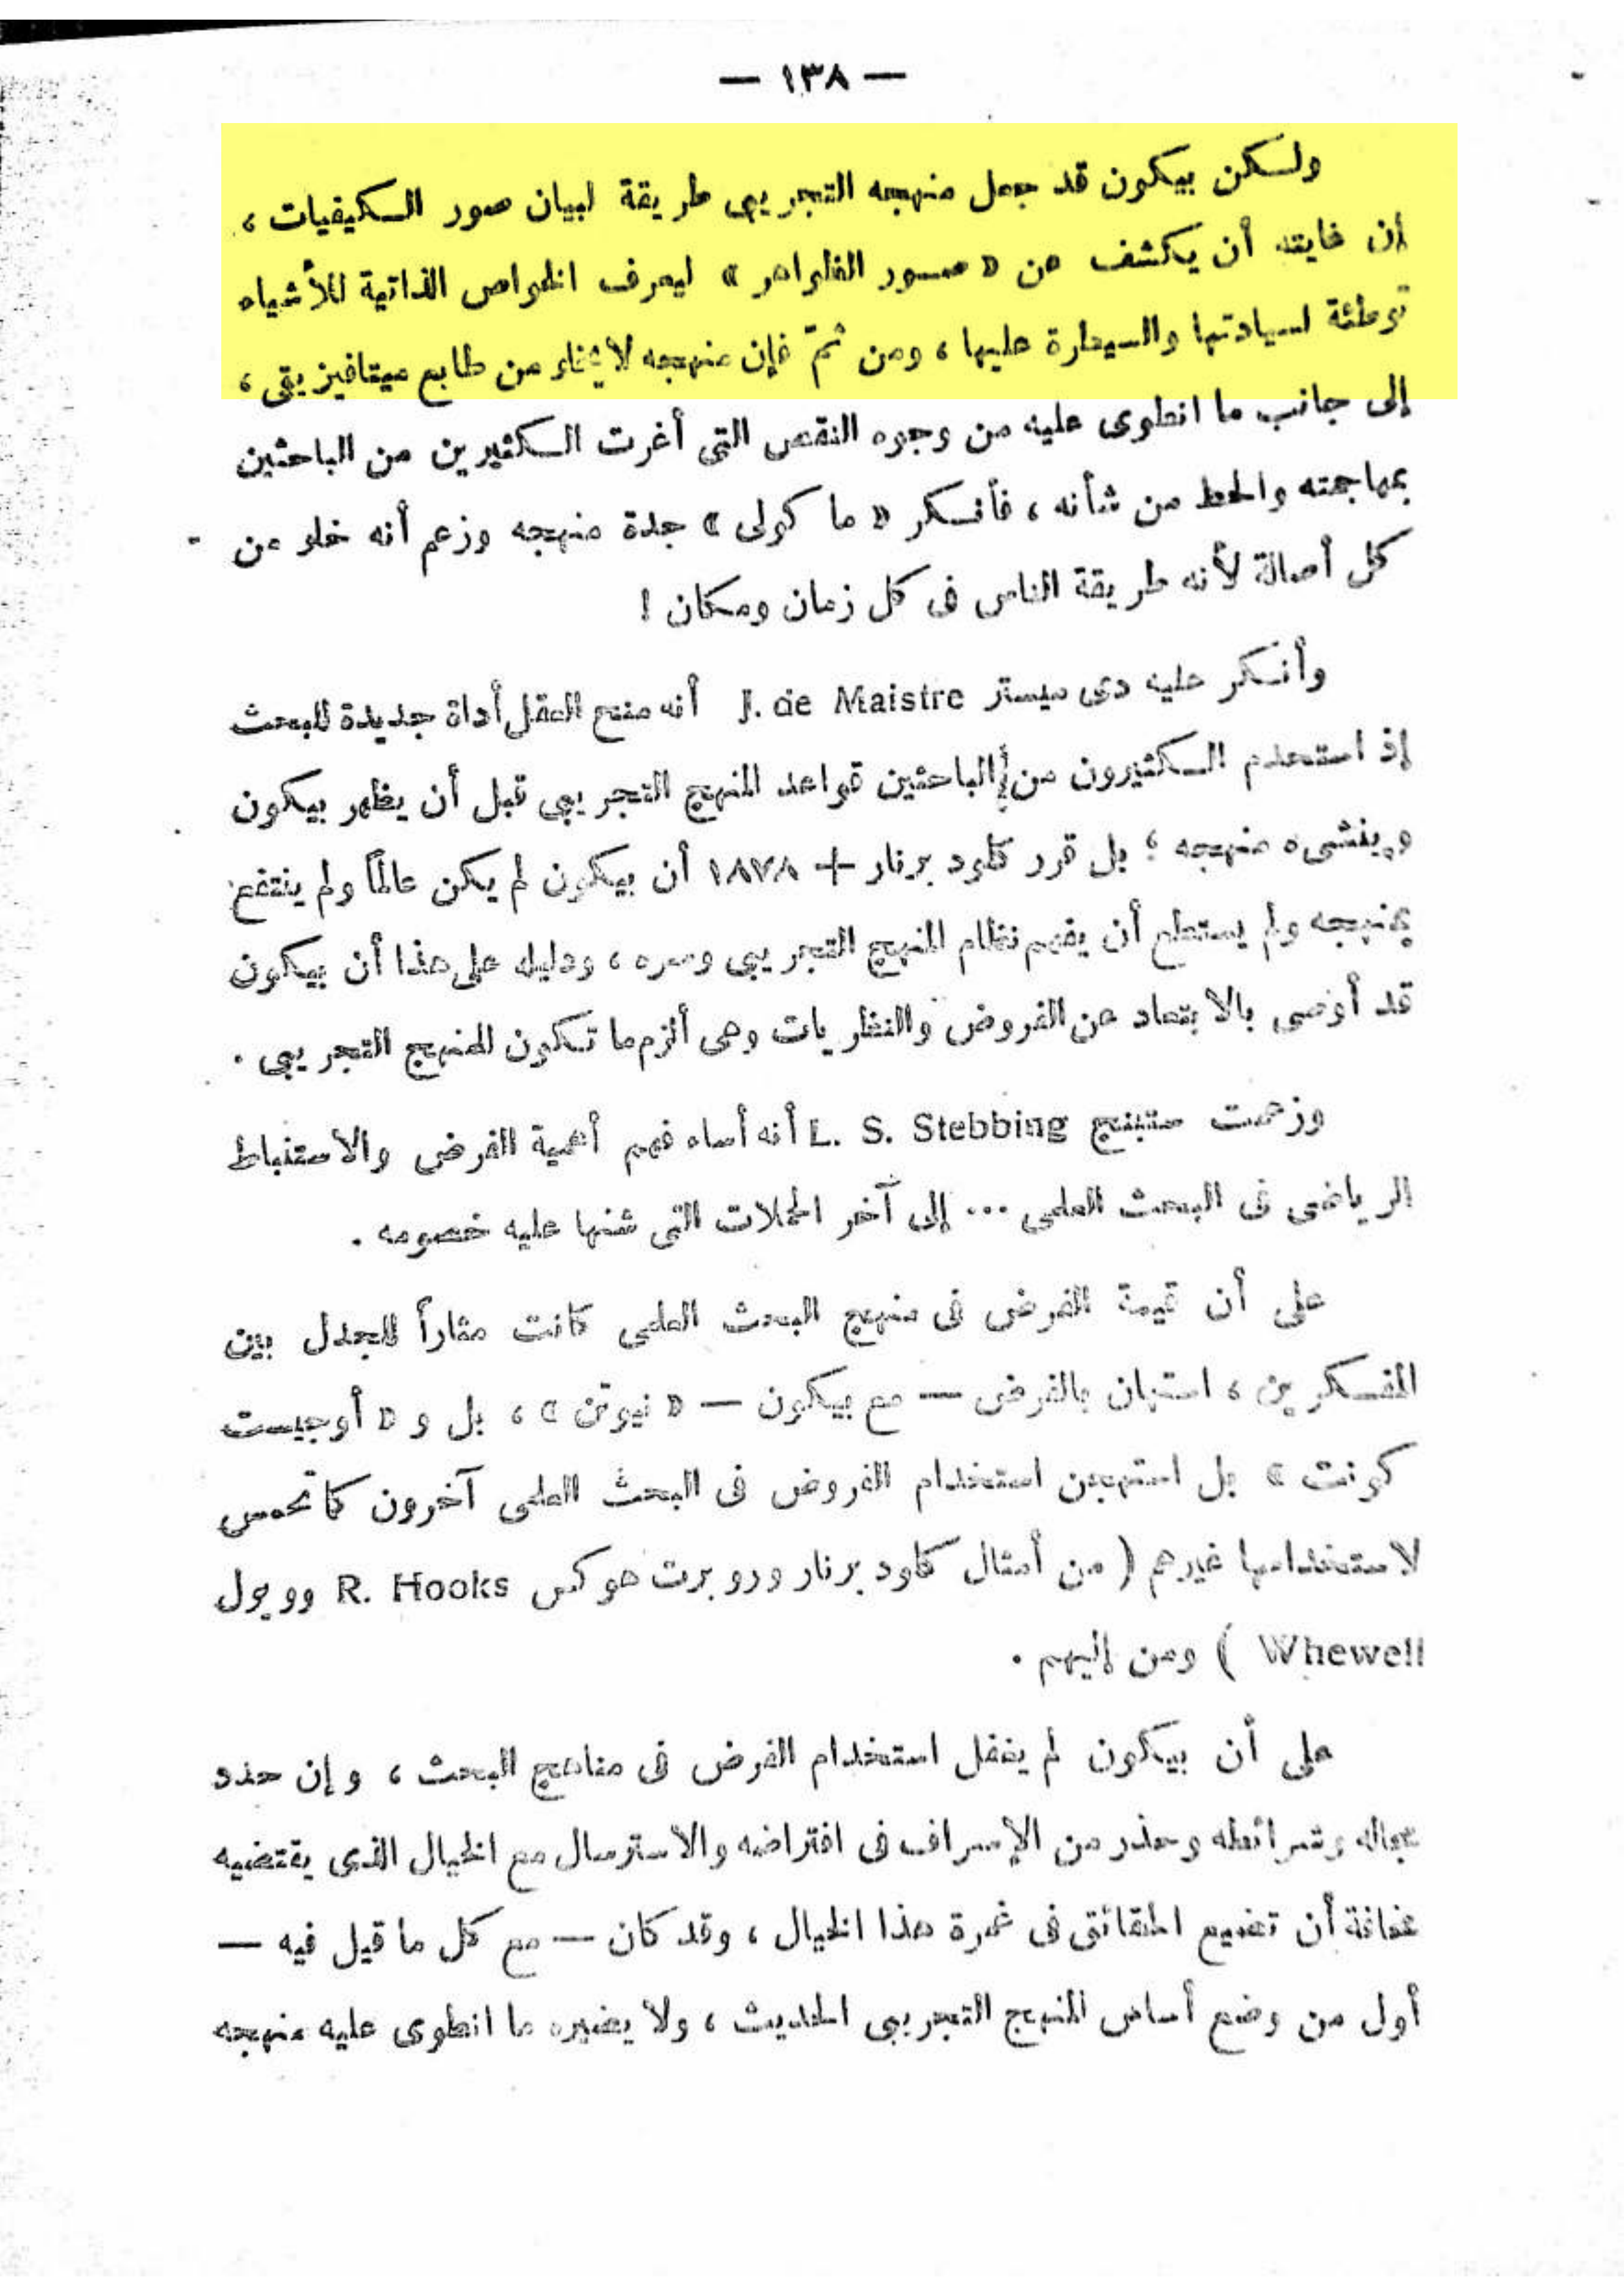 — ١٣٨ —
ولكن بيكون قد جعل منهجه التجريبى طريقة لبيان صور الكيفيات ،
أن غايته أن يكشف عن « صور الظواهر » ليعرف الخواص الذاتية للأشياء
توطئة لسيادتها والسيطرة عليها ، ومن ثمّ فإن منهجه لا يخلو من طابع ميتافيزيقى ،
إلى جانب ما انطوى عليه من وجوه النقص التى أغرت الكثيرين من الباحثين
بمهاجمته والحط من شأنه ، فأنكر « ما كولى » جدة منهجه وزعم أنه خلو من
كل أصالة لأنه طريقة الناس فى كل زمان ومكان !
وأنكر عليه دى ميستر J. de Maistre أنه منح العقل أداة جديدة للبحث
إذ استخدم الكثيرون من الباحثين قواعد المنهج التجريبى قبل أن يظهر بيكون
وينشىء منهجه ؛ بل قرر كلود برنار + ١٨٧٨ أن بيكون لم يكن عالماً ولم ينتفع
بمنهجه ولم يستطع أن يفهم نظام المنهج التجريبى وسره ، ودليله على هذا أن بيكون
قد أوصى بالابتعاد عن الفروض والنظريات وهى ألزم ما تكون للمنهج التجريبى .
وزعمت ستبنج L. S. Stebbing أنه أساء فهم أهمية الفرض والاستنباط
الرياضى فى البحث العلمى ... إلى آخر الحملات التى شنها عليه خصومه .
على أن قيمة الفرض فى منهج البحث العلمى كانت مثاراً للجدل بين
المفكرين ، استهان بالفرض — مع بيكون — « نيوتن » ، بل و « أوجيست
كونت » بل استهجن استخدام الفروض فى البحث العلمى آخرون كما تحمس
لاستخدامها غيرهم ( من أمثال كلود برنار وروبرت هوكس R. Hooks وويول
Whewell ) ومن إليهم .
على أن بيكون لم يغفل استخدام الفرض فى مناهج البحث ، وإن حدد
مجاله وشرائطه وحذر من الإسراف فى افتراضه والاسترسال مع الخيال الذى يقتضيه
مخافة أن تضيع الحقائق فى غمرة هذا الخيال ، وقد كان — مع كل ما قيل فيه —
أول من وضع أساس المنهج التجريبى الحديث ، ولا يضيره ما انطوى عليه منهجه